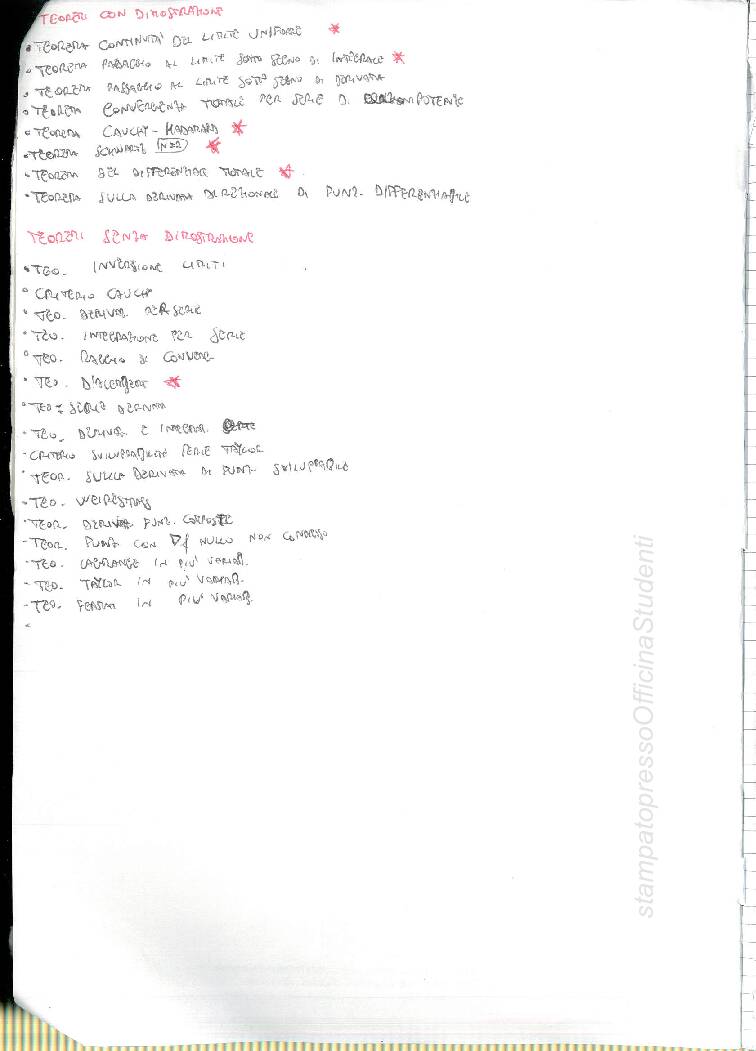 TEOREMI CON DIMOSTRAZIONE
• TEOREMA CONTINUITA' DEL LIMITE UNIFORME *
• TEOREMA PASSAGGIO AL LIMITE SOTTO SEGNO DI INTEGRALE *
• TEOREMA PASSAGGIO AL LIMITE SOTTO SEGNO DI DERIVATA
• TEOREMA CONVERGENZA TOTALE PER SERIE DI POTENZE
• TEOREMA CAUCHY-HADAMARD *
• TEOREMA SCHWARTZ *
• TEOREMA DEL DIFFERENZIALE TOTALE *
• TEOREMA SULLA DERIVATA DIREZIONALE DI FUNZ. DIFFERENZIABILE
TEOREMI SENZA DIMOSTRAZIONE
• TEO. INVERSIONE LIMITI
• CRITERIO CAUCHY
• TEO. DERIVAZ. PER SERIE
• TEO. INTEGRAZIONE PER SERIE
• TEO. RAGGIO DI CONVERG.
• TEO. D'ALEMBERT *
• TEO SERIE DERIVATA
• TEO. DERIVAZ. E INTEGRAZ. SERIE
- CRITERIO SVILUPPABILITÀ SERIE TAYLOR
• TEOR. SULLA DERIVATA DI FUNZ. SVILUPPABILE
• TEO. WEIRESTRASS
• TEOR. DERIVATA FUNZ. COMPOSTE
- TEOR. FUNZ CON ∇f NULLO NON CONNESSO
- TEO. LAGRANGE IN PIU' VARIAB.
- TEO. TAYLOR IN PIU' VARIAB.
- TEO. FERMAT IN PIU' VARIAB.
stampatopressoOfficinaStudenti